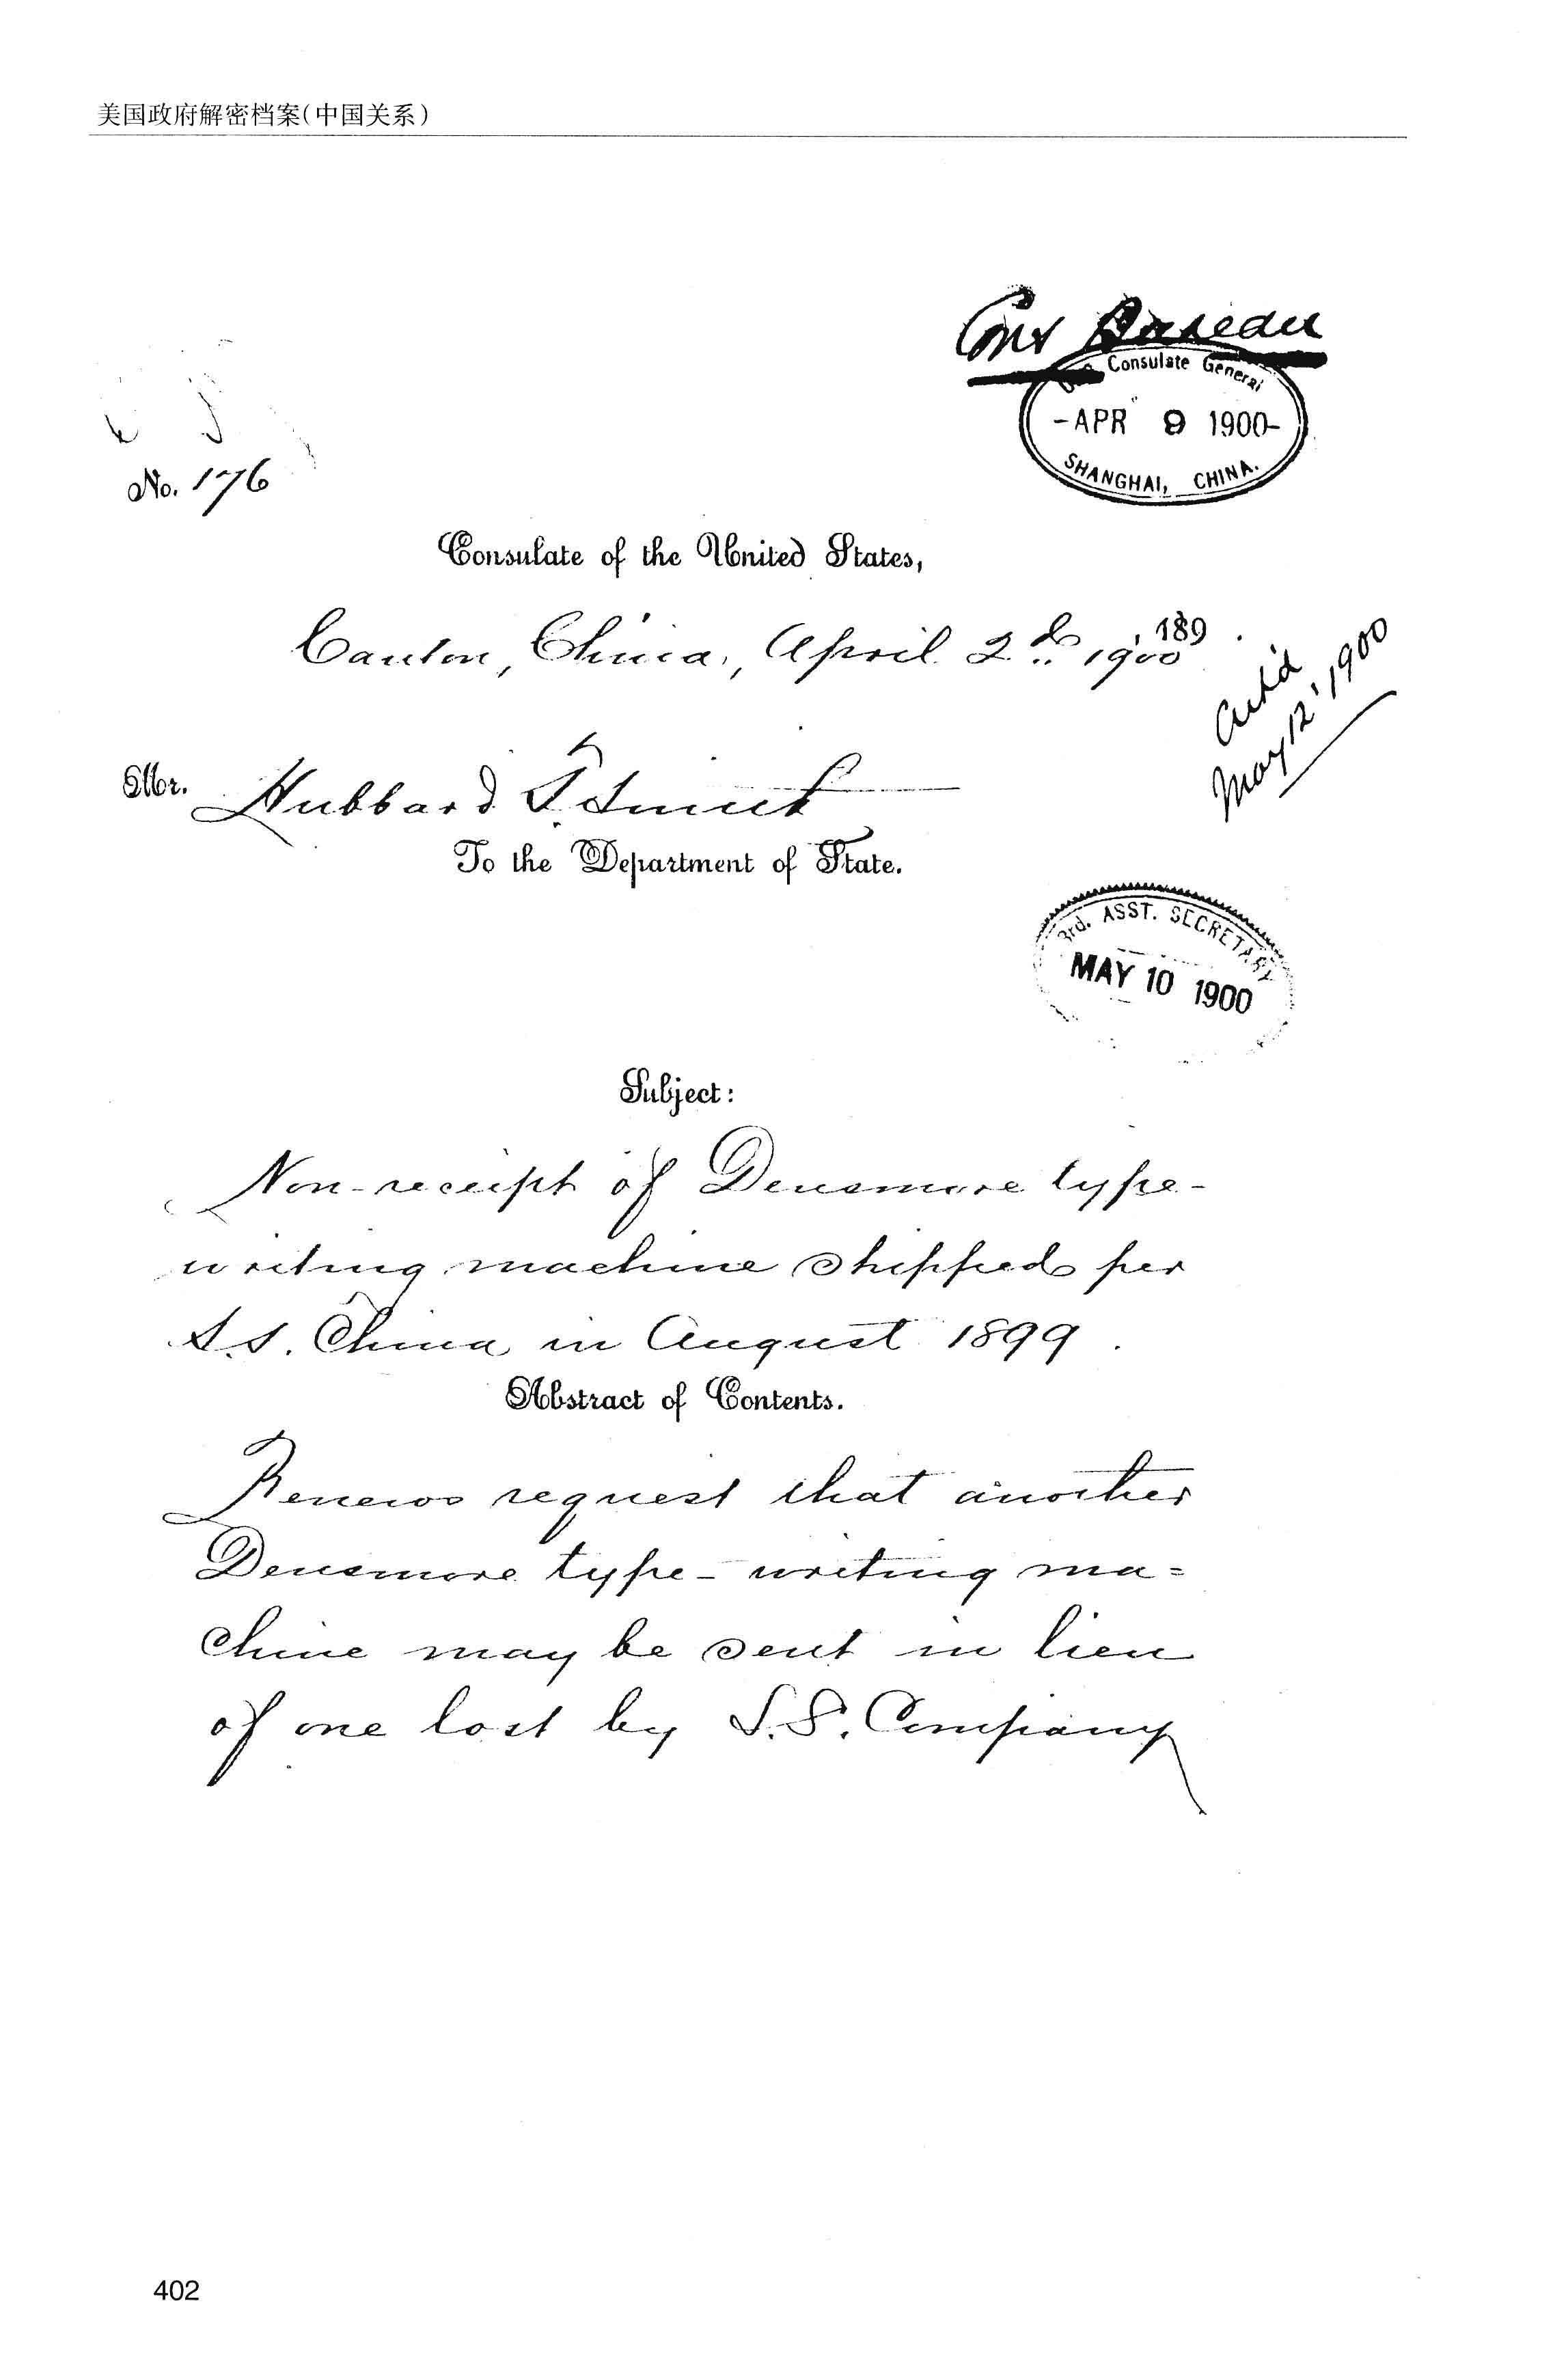 美国政府解密档案(中国关系)
Cons Bureau
U.S. Consulate General
-APR 9 1900-
SHANGHAI, CHINA.
No. 176
Consulate of the United States,
Canton, China, April 2d 1900 , 189 .
Ack'd
May 12, 1900
Mr. Hubbard T. Smith
To the Department of State.
3rd. ASST. SECRETARY
MAY 10 1900
Subject:
Non-receipt of Densmore type-
writing machine shipped per
S.S. China in August 1899.
Abstract of Contents.
Renews request that another
Densmore type-writing ma=
chine may be sent in lieu
of one lost by S.S. Company
402